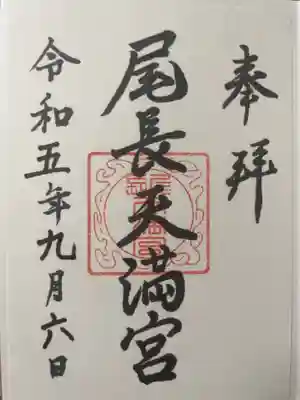 奉拝
尾長天満宮
令和五年九月六日